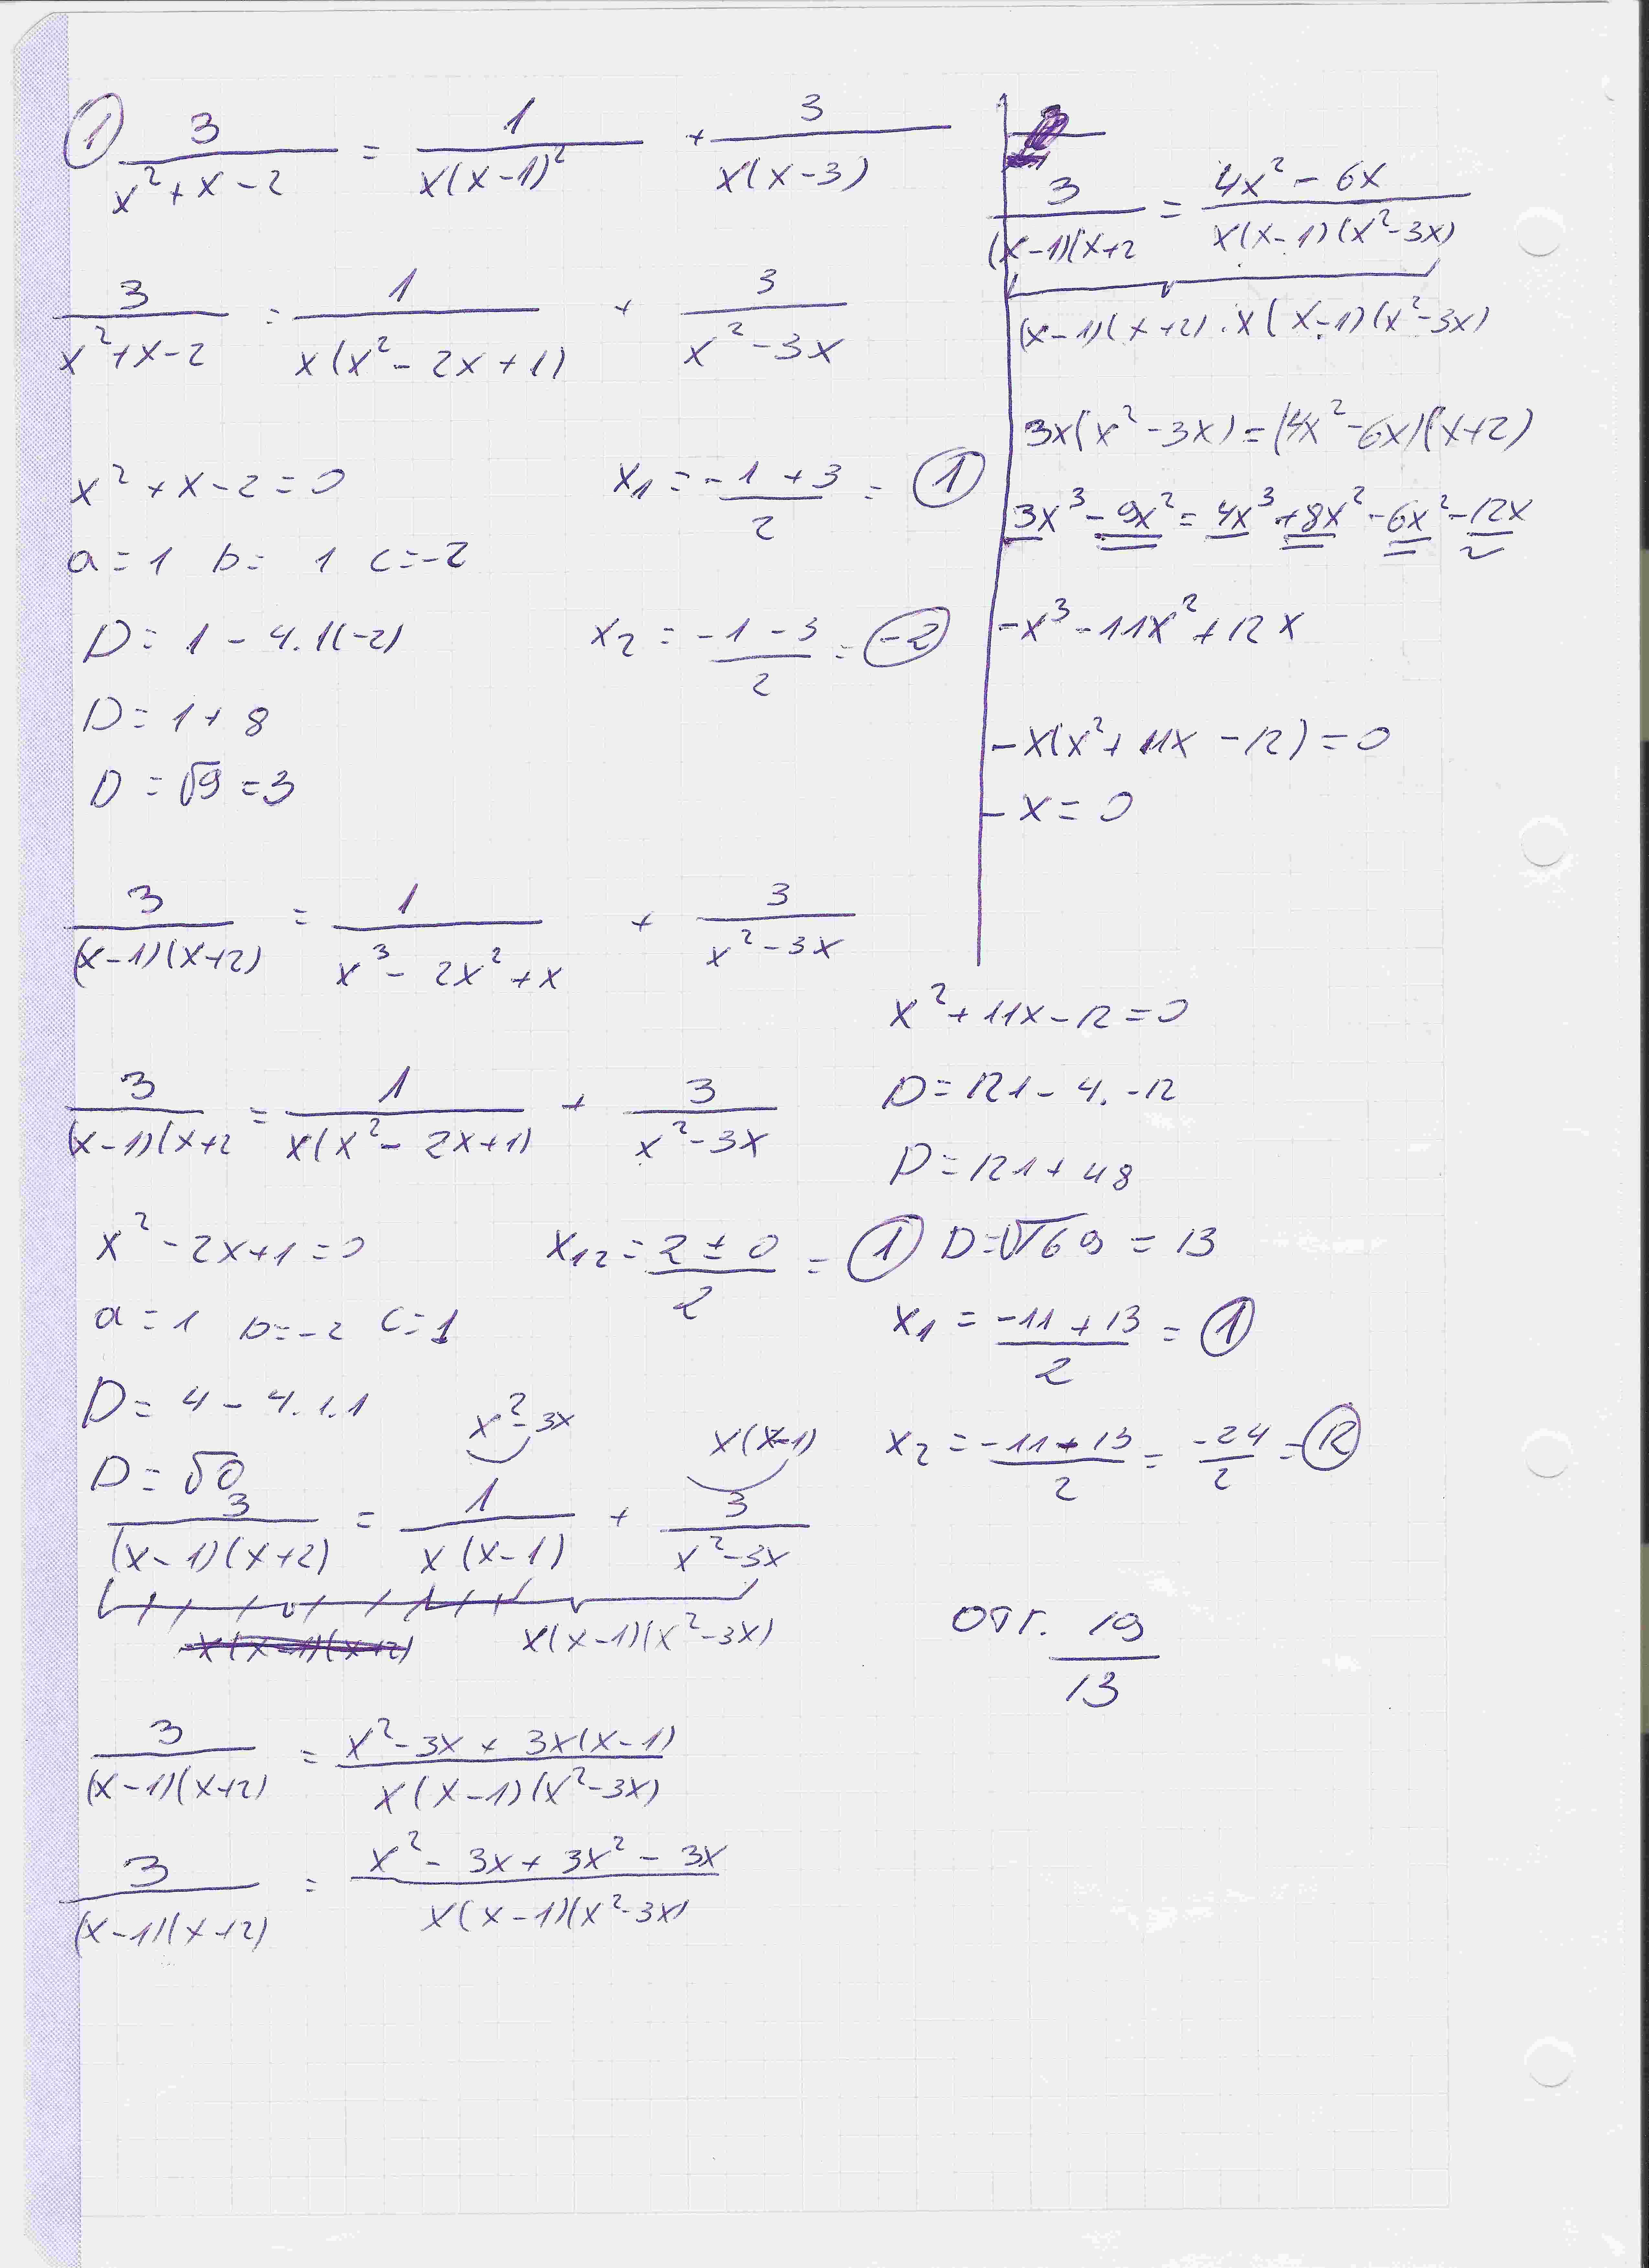 ① 3/(x²+x-2) = 1/(x(x-1)²) + 3/(x(x-3))
3/(x²+x-2) = 1/(x(x²-2x+1)) + 3/(x²-3x)
x²+x-2=0
a=1 b= 1 c=-2
D=1-4.1(-2)
D=1+8
D=√9=3
x₁=(-1+3)/2=①
x₂=(-1-3)/2=(-2)
3/((x-1)(x+2)) = 1/(x³-2x²+x) + 3/(x²-3x)
3/((x-1)(x+2 = 1/(x(x²-2x+1)) + 3/(x²-3x)
x²-2x+1=0
a=1 b=-2 c=1
D=4-4.1.1
D=√0
x₁₂=(2±0)/2=①
x²-3x x(x-1)
3/((x-1)(x+2)) = 1/(x(x-1)) + 3/(x²-3x)
x(x-1)(x+2) x(x-1)(x²-3x)
3/((x-1)(x+2)) = (x²-3x+3x(x-1))/(x(x-1)(x²-3x))
3/((x-1)(x+2)) = (x²-3x+3x²-3x)/(x(x-1)(x²-3x))
3/((x-1)(x+2 = (4x²-6x)/(x(x-1)(x²-3x))
(x-1)(x+2).x(x-1)(x²-3x)
3x(x²-3x)=(4x²-6x)(x+2)
3x³-9x²=4x³+8x²-6x²-12x
-x³-11x²+12x
-x(x²+11x-12)=0
-x=0
x²+11x-12=0
D=121-4.-12
D=121+48
D=√169=13
x₁=(-11+13)/2=①
x₂=(-11-13)/2=-24/2=-⑫
отг. 19/13